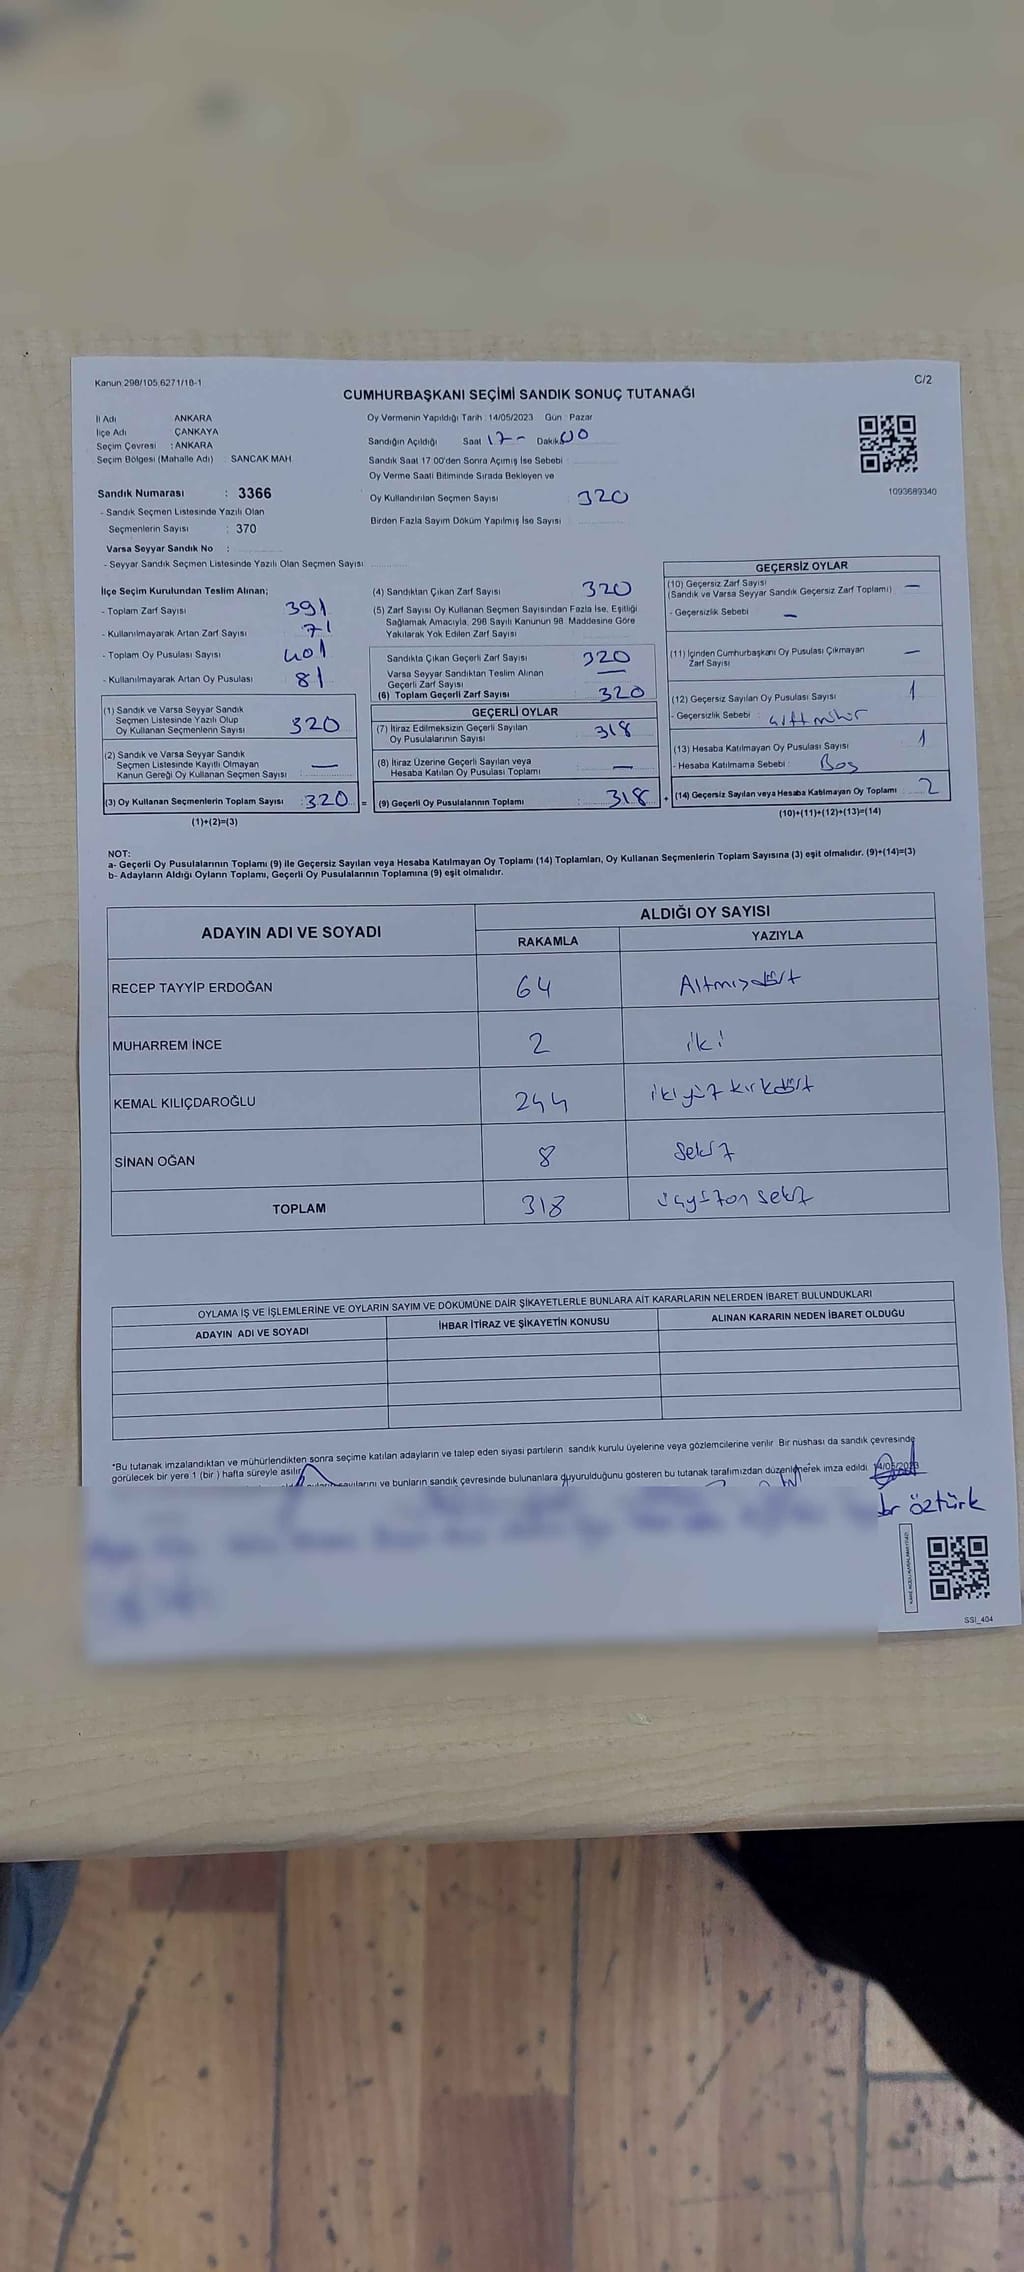 Kanun 298/105 6271/18-1
C/2
CUMHURBAŞKANI SEÇİMİ SANDIK SONUÇ TUTANAĞI
İl Adı ANKARA
İlçe Adı ÇANKAYA
Seçim Çevresi : ANKARA
Seçim Bölgesi (Mahalle Adı) : SANCAK MAH
Oy Vermenin Yapıldığı Tarih : 14/05/2023 Gün : Pazar
Sandığın Açıldığı Saat 17- Dakika 00
Sandık Saat 17 00'den Sonra Açımış İse Sebebi :
Oy Verme Saati Bitiminde Sırada Bekleyen ve
Oy Kullandırılan Seçmen Sayısı : 320
Birden Fazla Sayım Döküm Yapılmış İse Sayısı :
1093689340
Sandık Numarası : 3366
- Sandık Seçmen Listesinde Yazılı Olan
Seçmenlerin Sayısı : 370
Varsa Seyyar Sandık No :
- Seyyar Sandık Seçmen Listesinde Yazılı Olan Seçmen Sayısı
İlçe Seçim Kurulundan Teslim Alınan;
- Toplam Zarf Sayısı 391
- Kullanılmayarak Artan Zarf Sayısı 71
- Toplam Oy Pusulası Sayısı 401
- Kullanılmayarak Artan Oy Pusulası 81
(1) Sandık ve Varsa Seyyar Sandık
Seçmen Listesinde Yazılı Olup
Oy Kullanan Seçmenlerin Sayısı : 320
(2) Sandık ve Varsa Seyyar Sandık
Seçmen Listesinde Kayıtlı Olmayan
Kanun Gereği Oy Kullanan Seçmen Sayısı : —
(3) Oy Kullanan Seçmenlerin Toplam Sayısı : 320 =
(1)+(2)=(3)
(4) Sandıktan Çıkan Zarf Sayısı 320
(5) Zarf Sayısı Oy Kullanan Seçmen Sayısından Fazla İse, Eşitliği
Sağlamak Amacıyla, 298 Sayılı Kanunun 98 Maddesine Göre
Yakılarak Yok Edilen Zarf Sayısı
Sandıkta Çıkan Geçerli Zarf Sayısı 320
Varsa Seyyar Sandıktan Teslim Alınan
Geçerli Zarf Sayısı —
(6) Toplam Geçerli Zarf Sayısı 320
GEÇERLİ OYLAR
(7) İtiraz Edilmeksizin Geçerli Sayılan
Oy Pusulalarının Sayısı : 318
(8) İtiraz Üzerine Geçerli Sayılan veya
Hesaba Katılan Oy Pusulası Toplamı : —
(9) Geçerli Oy Pusulalarının Toplamı : 318 +
GEÇERSİZ OYLAR
(10) Geçersiz Zarf Sayısı
(Sandık ve Varsa Seyyar Sandık Geçersiz Zarf Toplamı) —
- Geçersizlik Sebebi : —
(11) İçinden Cumhurbaşkanı Oy Pusulası Çıkmayan
Zarf Sayısı —
(12) Geçersiz Sayılan Oy Pusulası Sayısı 1
- Geçersizlik Sebebi : çift mühür
(13) Hesaba Katılmayan Oy Pusulası Sayısı 1
- Hesaba Katılmama Sebebi : Boş
(14) Geçersiz Sayılan veya Hesaba Katılmayan Oy Toplamı : 2
(10)+(11)+(12)+(13)=(14)
NOT:
a- Geçerli Oy Pusulalarının Toplamı (9) ile Geçersiz Sayılan veya Hesaba Katılmayan Oy Toplamı (14) Toplamları, Oy Kullanan Seçmenlerin Toplam Sayısına (3) eşit olmalıdır. (9)+(14)=(3)
b- Adayların Aldığı Oyların Toplamı, Geçerli Oy Pusulalarının Toplamına (9) eşit olmalıdır.
ADAYIN ADI VE SOYADI
ALDIĞI OY SAYISI
RAKAMLA YAZIYLA
RECEP TAYYİP ERDOĞAN 64 Altmışdört
MUHARREM İNCE 2 iki
KEMAL KILIÇDAROĞLU 244 ikiyüz kırkdört
SİNAN OĞAN 8 Sekiz
TOPLAM 318 üçyüzon sekiz
OYLAMA İŞ VE İŞLEMLERİNE VE OYLARIN SAYIM VE DÖKÜMÜNE DAİR ŞİKAYETLERLE BUNLARA AİT KARARLARIN NELERDEN İBARET BULUNDUKLARI
ADAYIN ADI VE SOYADI İHBAR İTİRAZ VE ŞİKAYETİN KONUSU ALINAN KARARIN NEDEN İBARET OLDUĞU
*Bu tutanak imzalandıktan ve mühürlendikten sonra seçime katılan adayların ve talep eden siyasi partilerin sandık kurulu üyelerine veya gözlemcilerine verilir Bir nüshası da sandık çevresinde
görülecek bir yere 1 (bir ) hafta süreyle asılır
sayılarını ve bunların sandık çevresinde bulunanlara duyurulduğunu gösteren bu tutanak tarafımızdan düzenlenerek imza edildi 14/05/2023
öztürk
SSI_404